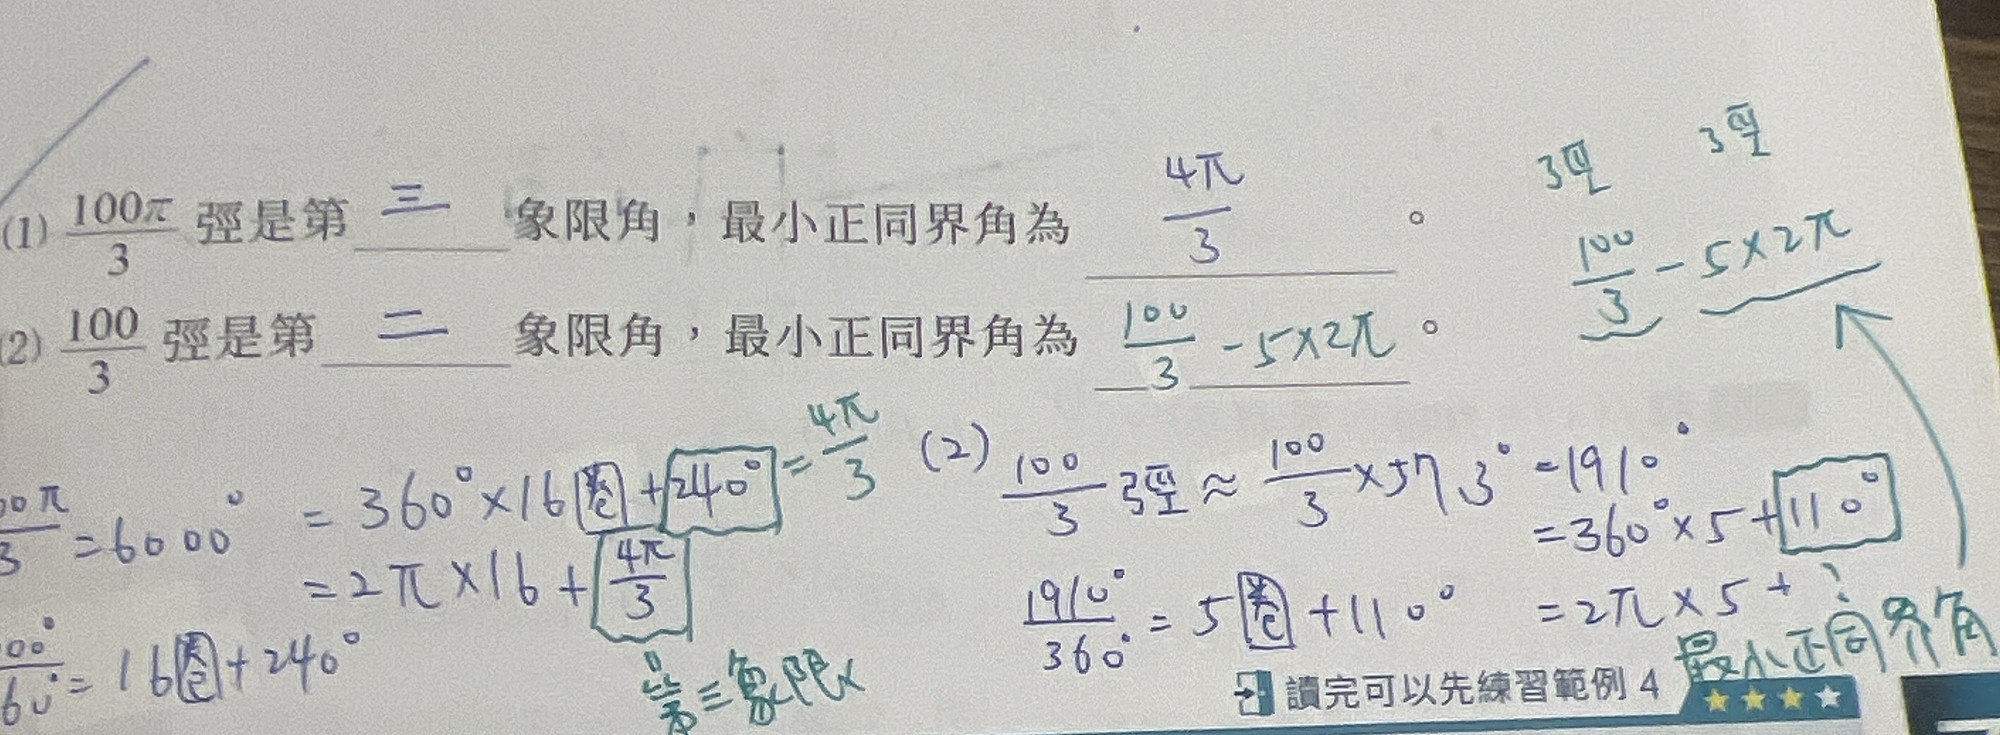 (1) 100π/3 弳是第 三 象限角，最小正同界角為 4π/3 。
(2) 100/3 弳是第 二 象限角，最小正同界角為 100/3 - 5×2π 。
弳 弳
100/3 - 5×2π
00π/3 = 6000° = 360°×16圈 + 240° = 4π/3
= 2π×16 + 4π/3
00°/60° = 16圈 + 240°
第三象限
(2) 100/3 弳 ≈ 100/3 × 57.3° = 1910°
= 360° × 5 + 110°
1910°/360° = 5圈 + 110° = 2π × 5 + ?
最小正同界角
讀完可以先練習範例 4